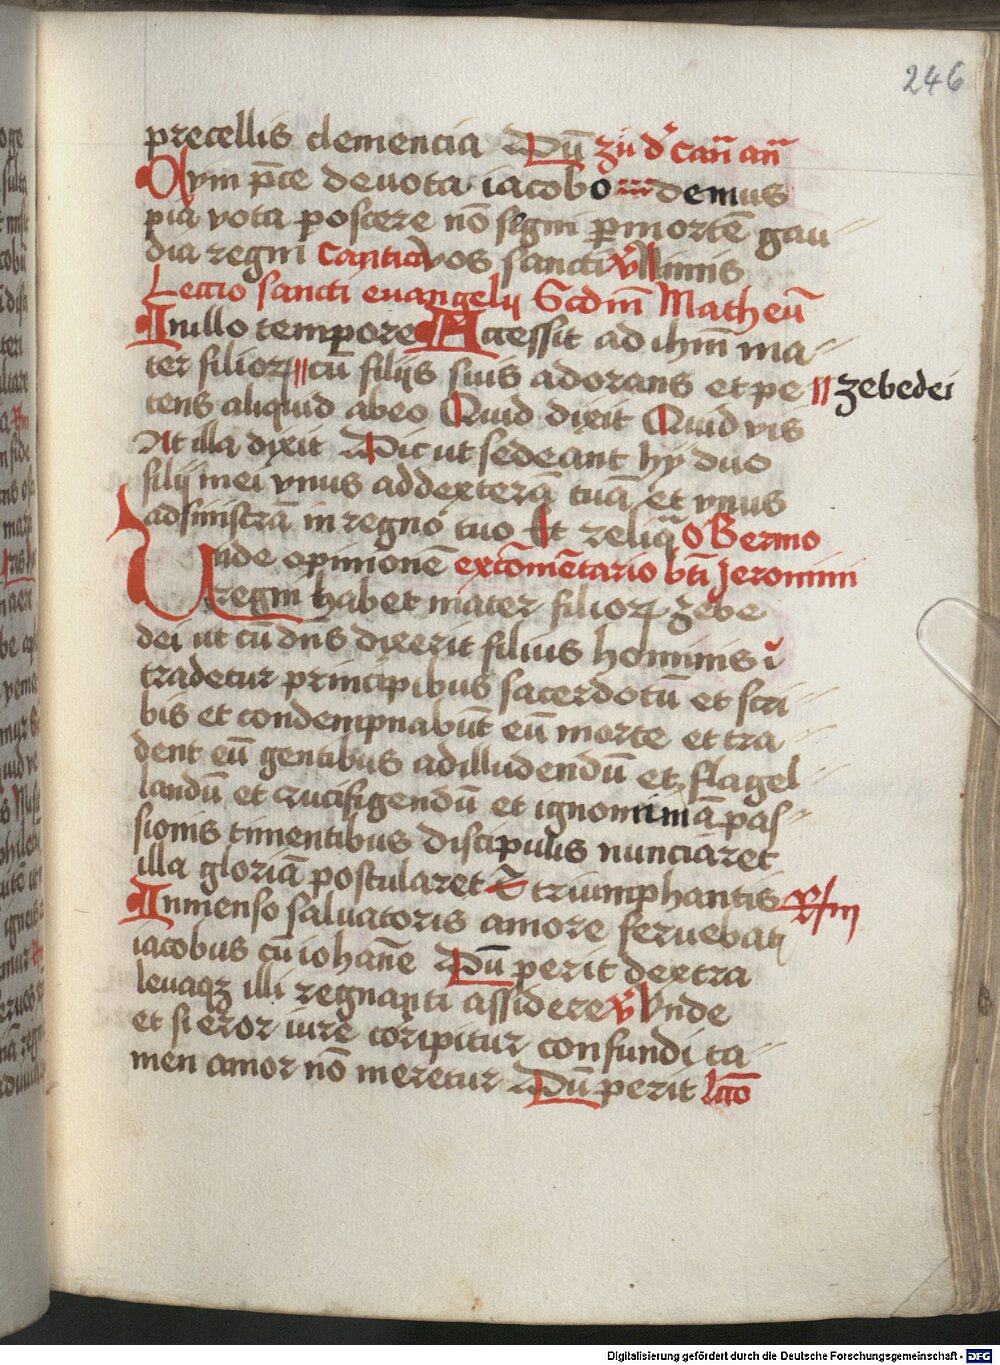 246
precellis clemencia Dū zū d' can̄ an̄
Olym pr̄ce deuota iacobo demus
pia vota poscere nō segni p̄ mortē gau
dia regni Cantica vos sancti v̄ Nimis
Leccio sancti euangelij Scdm̄ Matheū
Inillo tempore Accessit ad ihm̄ ma
ter filioꝝ cū filijs suis adorans et pe zebedei
tens aliquid abeo Quid dixit Quid vis
At illa dyxit Dic ut sedeant hy duo
filij mei vnus addexterā tuā et vnus
adsinistrā in regno tuo Et reliq̄ O Sermo
Unde opinionē excōmētario bt̄i Jeronimi
regni habet mater filioꝝ zebe
dei ut cū dn̄s dixerit filius hominis
tradetur principibus sacerdotū et scri
bis et condempnabūt eū morte et tra
dent eū gentibus adilludendū et flagel
landū et crucifigendū et ignominiā pas
sionis timentibus discipulis nunciaret
illa gloriā postularet triumphantis
Inmenso saluatoris amore feruebat
iacobus cū iohāne Dū perit dextra
leuaqꝫ illi regnanti assidere v̄ Unde
et si error iure coripitur confundi ta
men amor nō meretur Dū perit lc̄o
Digitalisierung gefördert durch die Deutsche Forschungsgemeinschaft - DFG